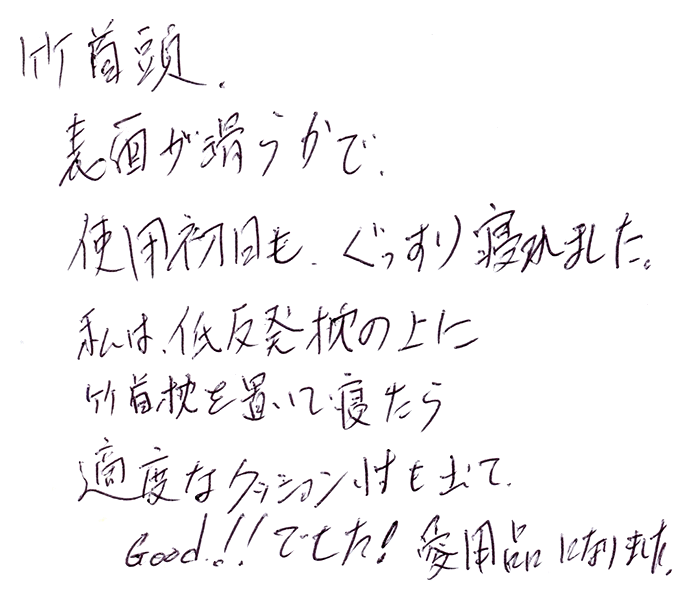 竹首頭、
表面が滑らかで、
使用初日も、ぐっすり寝れました。
私は、低反発枕の上に
竹首枕を置いて寝たら
適度なクッション性も出て、
Good!!でした!愛用品になりました。